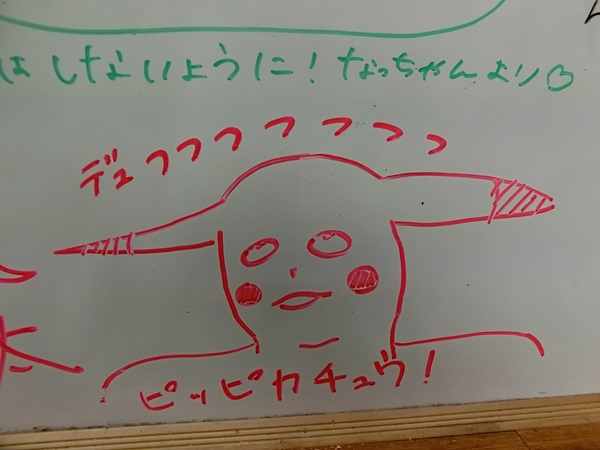 はしないように!なっちゃんより♡
デュフフフフフフフ
ピッピカチュウ!